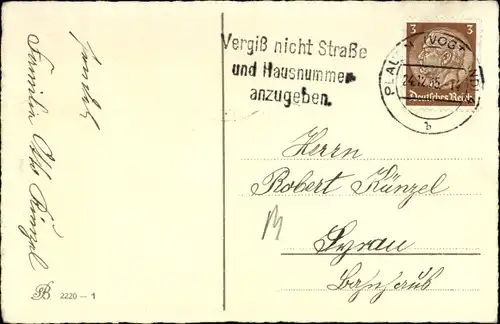 sendet
Familie Otto Künzel
2220 - 1
Vergiß nicht Straße
und Hausnummer
anzugeben.
PLAUEN (VOGTL)
24.12.35
b
3 3
Deutsches Reich
Herrn
Robert Künzel
Syrau
Bahnhaus